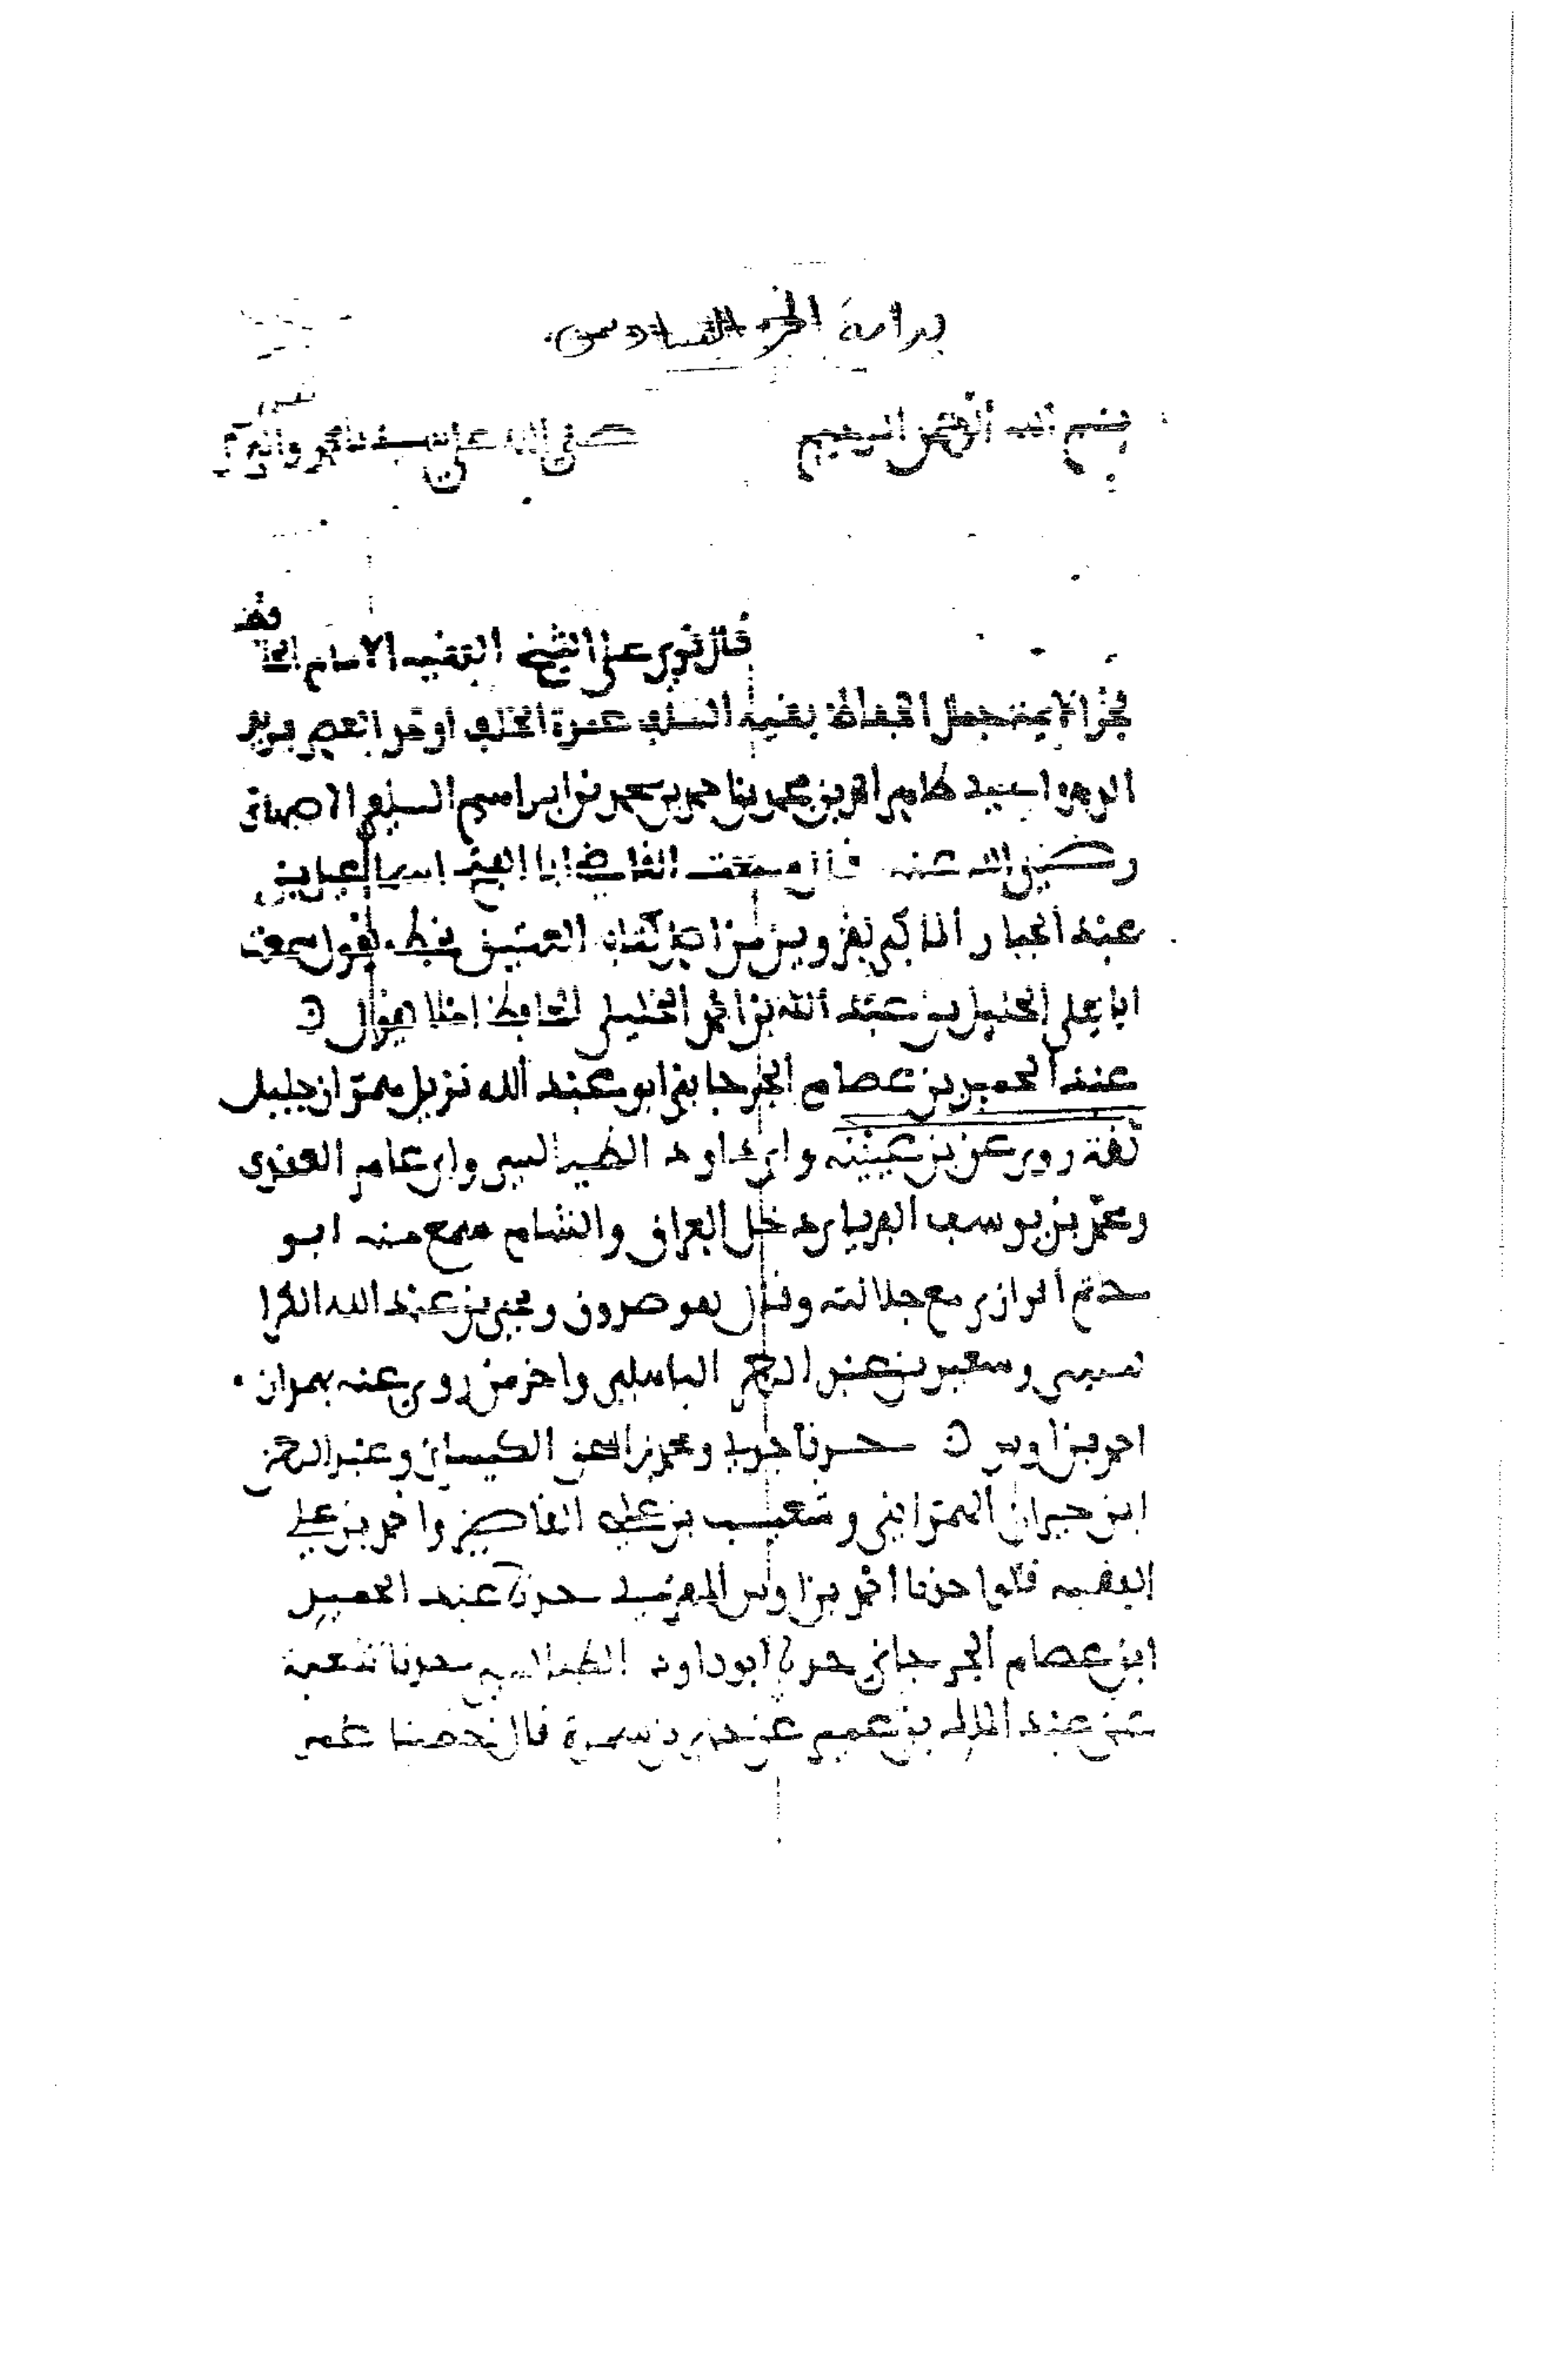 بداية الجزء السادس
بسم الله الرحمن الرحيم صلى الله على سيدنا محمد وآله
قال قرئ على الشيخ الفقيه الامام الحافظ
فخر الايمة جمال الحفاظ بقية السلف عمدة الخلف اوحد العصر فريد
الدهر ابي طاهر احمد بن محمد بن احمد بن محمد بن ابراهيم السلفي الاصبهاني
رضي الله عنه قال سمعت القاضي ابا الفتح اسماعيل بن
عبد الجبار الماكي بقزوين من اصل كتابه العتيق بخطه يقول سمعت
ابا يعلى الخليل بن عبد الله بن احمد الخليلي الحافظ املا يقول
عبد الحميد بن عصام الجرجاني ابو عبد الله نزيل همذان جليل
ثقة روى عن بن عيينة وابي داود الطيالسي وابي عامر العقدي
ومحمد بن يوسف الفريابي دخل العراق والشام سمع منه ابو
حاتم الرازي مع جلالته وقال هو صدوق ويحيى بن عبد الله الكرا
بيسي وسعيد بن عبد الرحمن الباهلي واخر من روى عنه بهمذان
احمد بن اوس حدثنا جدي ومحمد بن اسحق الكيساني وعبد الرحمن
ابن حمدان الهمذاني وشعيب بن علي القاضي واحمد بن علي
الفقيه قالوا حدثنا احمد بن اوس المقرئ حدثنا عبد الحميد
ابن عصام الجرجاني حدثنا ابو داود الطيالسي حدثنا شعبة
عن عبد الملك بن عمير عن جابر بن سمرة قال خطبنا عمر